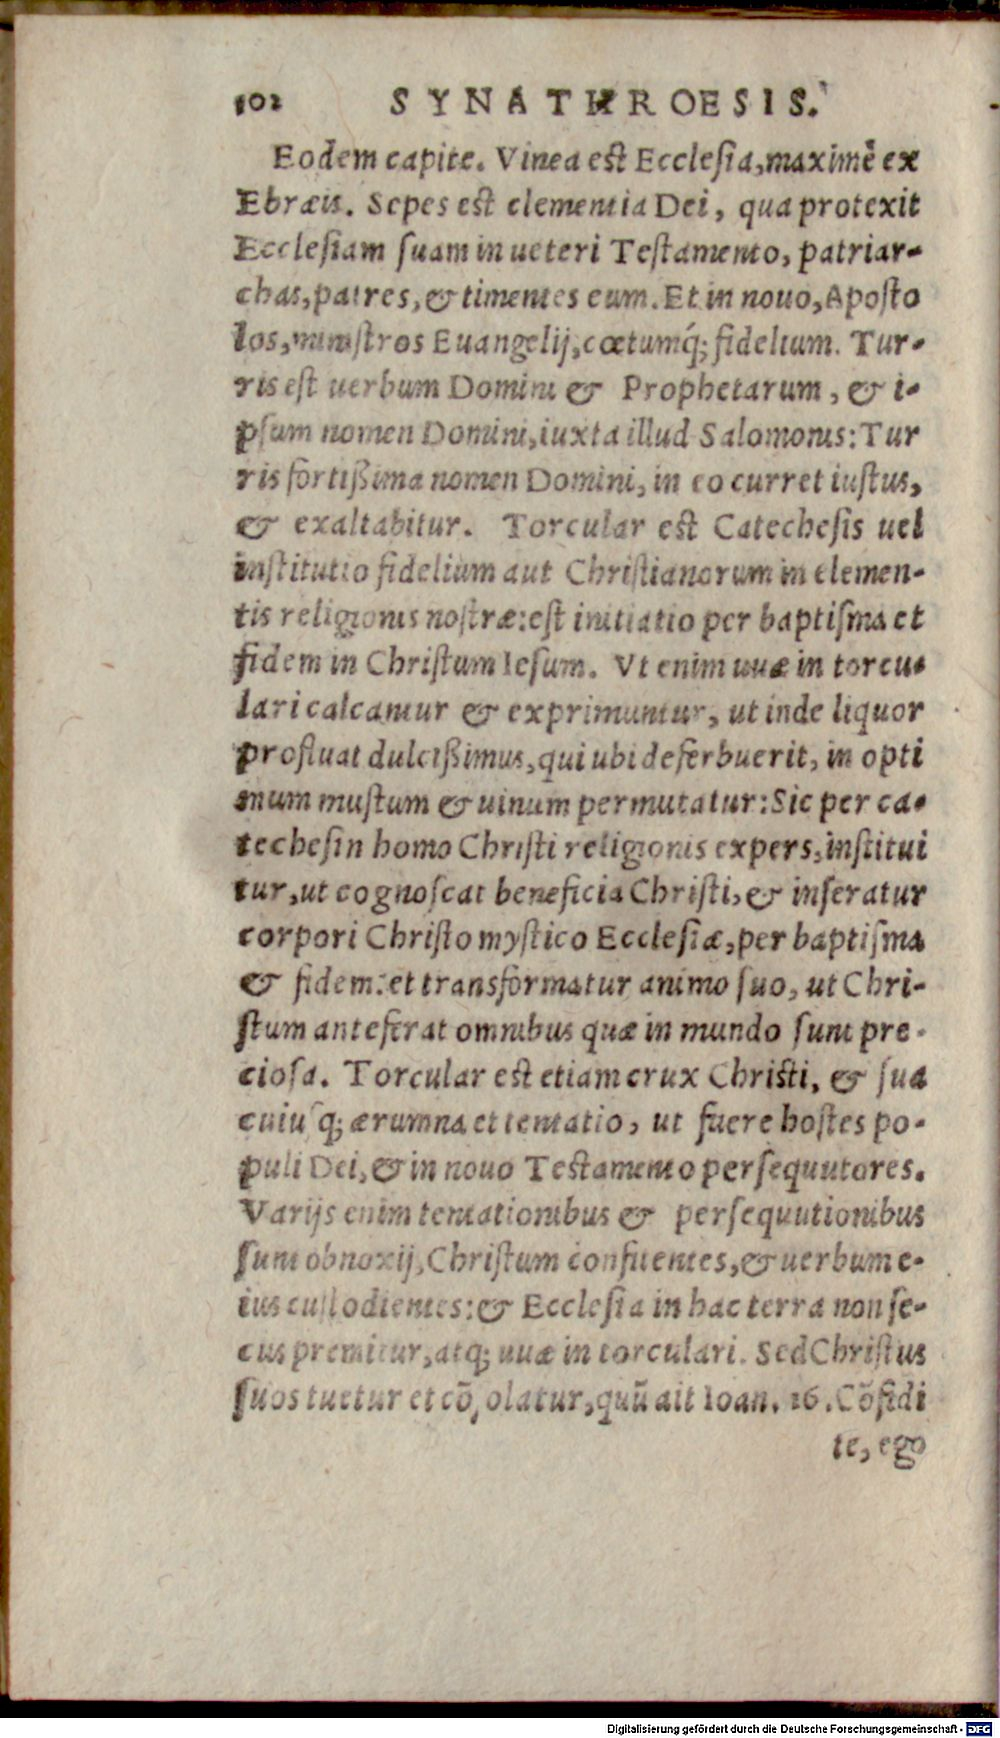 102 SYNATHROESIS.
Eodem capite. Vinea est Ecclesia, maximè ex
Ebræis. Sepes est clementia Dei, qua protexit
Ecclesiam suam in ueteri Testamento, patriar-
chas, patres, & timentes eum. Et in nouo, Aposto
los, ministros Euangelij, cœtumq́; fidelium. Tur-
ris est uerbum Domini & Prophetarum, & i-
psum nomen Domini, iuxta illud Salomonis: Tur
ris fortißima nomen Domini, in eo curret iustus,
& exaltabitur. Torcular est Catechesis uel
institutio fidelium aut Christianorum in elemen-
tis religionis nostræ: est initiatio per baptisma et
fidem in Christum Iesum. Vt enim uuæ in torcu-
lari calcantur & exprimuntur, ut inde liquor
profluat dulcißimus, qui ubi deferbuerit, in opti
mum mustum & uinum permutatur: Sic per ca-
techesin homo Christi religionis expers, institui
tur, ut cognoscat beneficia Christi, & inseratur
corpori Christo mystico Ecclesiæ, per baptisma
& fidem: et transformatur animo suo, ut Chri-
stum anteferat omnibus quæ in mundo sunt pre-
ciosa. Torcular est etiam crux Christi, & sua
cuiusq; ærumna et tentatio, ut fuere hostes po-
puli Dei, & in nouo Testamento persequutores.
Varijs enim tentationibus & persequutionibus
sunt obnoxij, Christum confitentes, & uerbum e-
ius custodientes: & Ecclesia in hac terra non se-
cus premitur, atq; uuæ in torculari. Sed Christus
suos tuetur et cõsolatur, quũ ait Ioan. 16. Cõfidi
te, ego
Digitalisierung gefördert durch die Deutsche Forschungsgemeinschaft - DFG